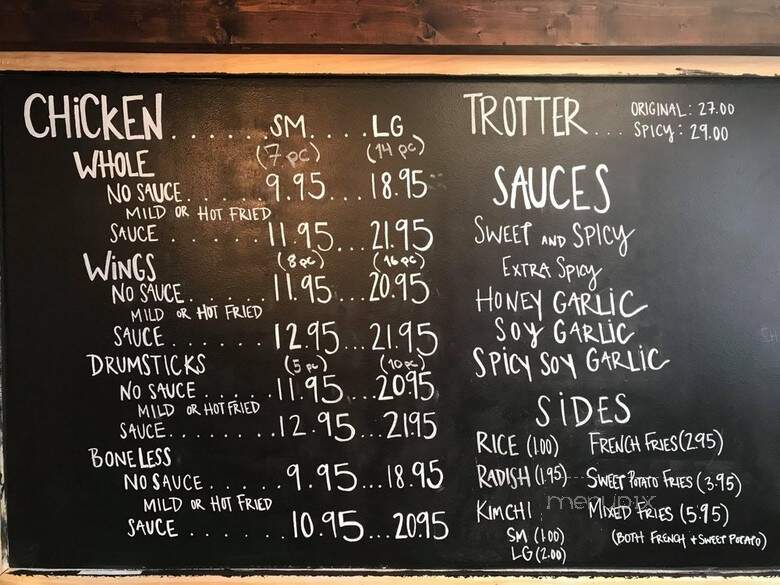 CHICKEN......SM....LG
(7 pc) (14 pc)
WHOLE
NO SAUCE......9.95...18.95
MILD OR HOT FRIED
SAUCE......11.95...21.95
WINGS (8 pc) (16 pc)
NO SAUCE......11.95...20.95
MILD OR HOT FRIED
SAUCE......12.95...21.95
DRUMSTICKS (5 pc) (10 pc)
NO SAUCE......11.95...2095
MILD OR HOT FRIED
SAUCE......12.95...2195
BONELESS
NO SAUCE......9.95...18.95
MILD OR HOT FRIED
SAUCE......10.95...2095
TROTTER... ORIGINAL: 27.00
SPICY: 29.00
SAUCES
SWEET AND SPICY
EXTRA SPICY
HONEY GARLIC
SOY GARLIC
SPICY SOY GARLIC
SIDES
RICE (1.00) FRENCH FRIES (2.95)
RADISH (1.95) SWEET POTATO FRIES (3.95)
KIMCHI MIXED FRIES (5.95)
SM (1.00) (BOTH FRENCH + SWEET POTATO)
LG (2.00)
menupix